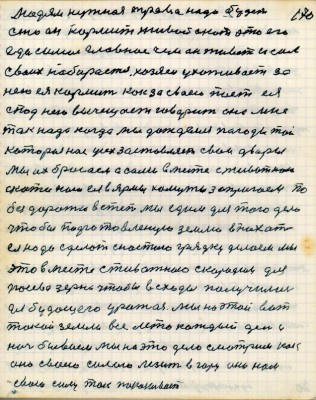 людям нужная трава надо будет 170
сто ан кормит живой скот это его
еда самое главное чем ан живот и сил
своих набарается, хозяен ухоживает за
нею ея кормит как за своею поет ея
спод нею вычещает говарит она мне
так надо когда мы дождемся пагоды той
которая нас всех заставляет свои двары
мы их бросаем а сами вместе с животном
скотом на ея в ярмы хомуты запрягаем по
без дарожа в степ мы едим для того дело
чтобы подготовленную землю впахат
ея надо сделат частою грядку делаем мы
это вместе с животного скародим для
посева зерна чтобы всходы получили
для будующего урожая. мы на этой вот
такой земли все лето каждый ден и
ноч бываем мы на это дело смотрим как
оно своею силою лезит в гору оно нам
свою силу так показывает